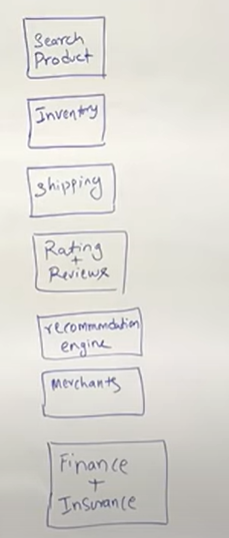 Search
Product
Inventory
Shipping
Rating
+
Reviews
recommndation
engine
Merchants
Finance
+
Insurance